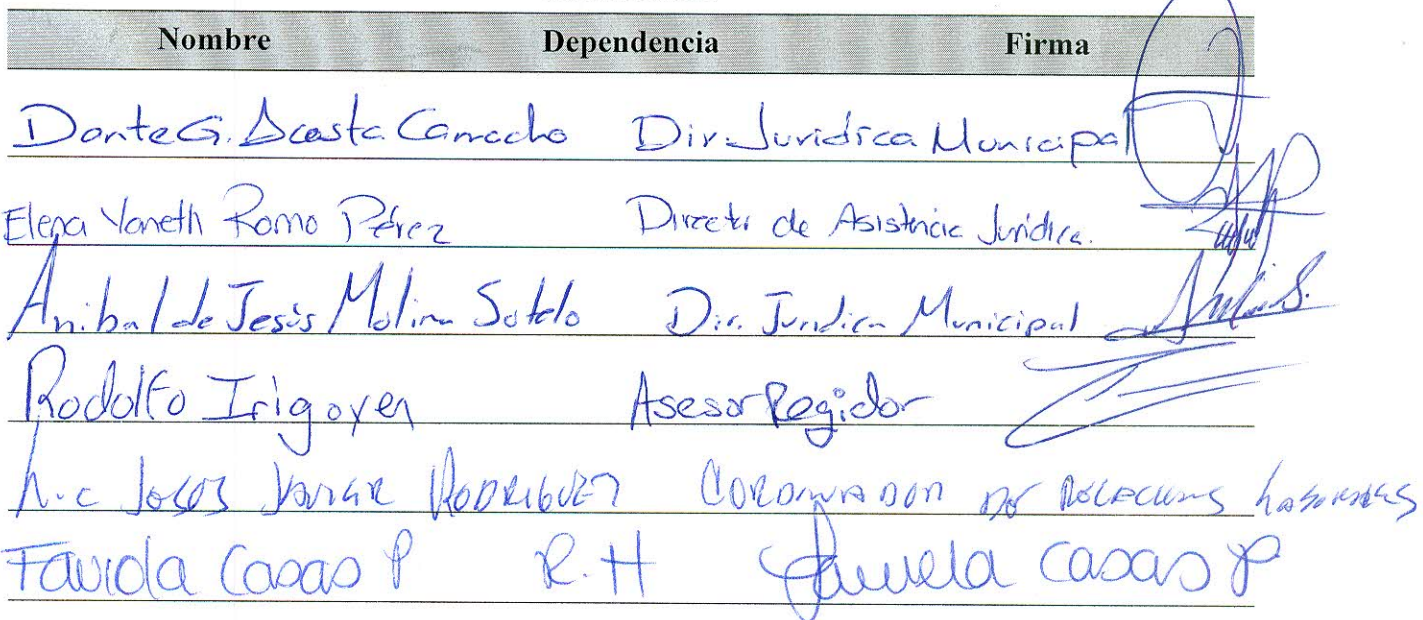 Nombre Dependencia Firma
Dante G. Acosta Camacho Dir. Juridica Municipal
Elena Yaneth Romo Pérez Director de Asistencia Jurídica.
Anibal de Jesús Molina Sotelo Dir. Juridica Municipal
Rodolfo Irigoyen Asesor Regidor
L.c Jesús Javier RODRIGUEZ COORDINADOR DE RELACIONES LABORALES
Faviola Casas P R.H Faviola Casas P